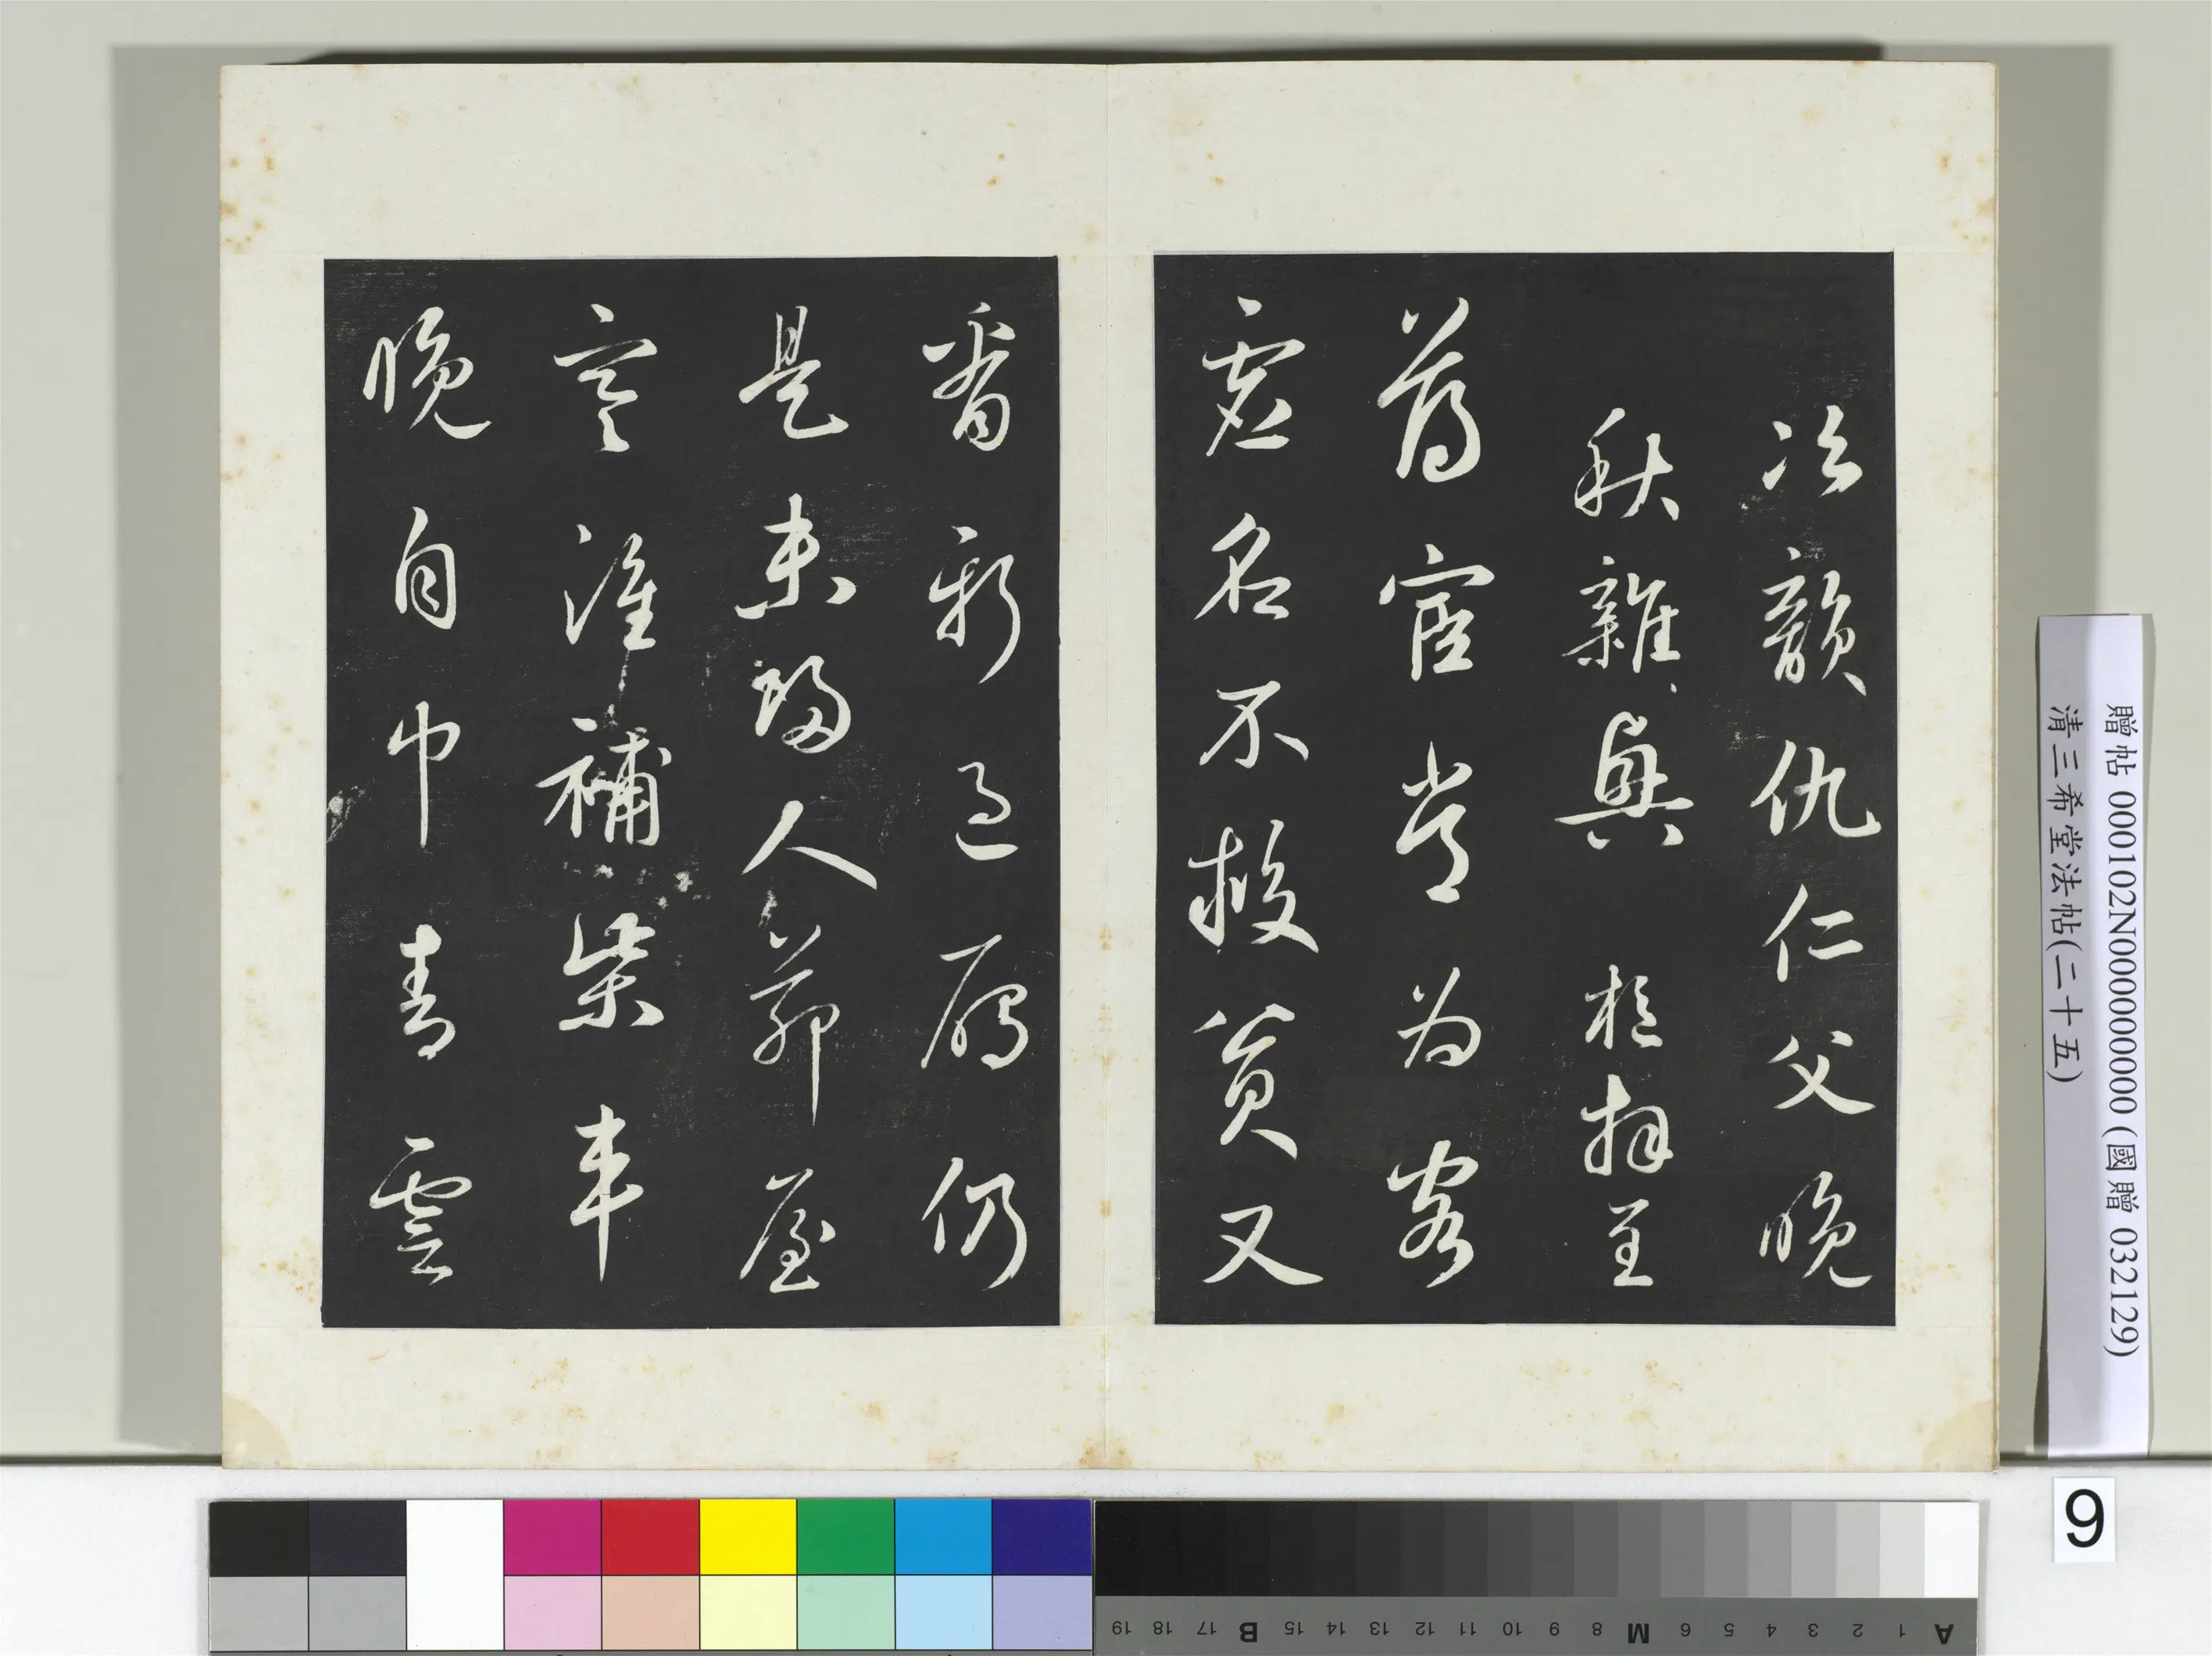 次韻仇仁父晚
秋雜興 樞拜呈
薄宦常为客
虛名不救貧又
看新過雁仍
是未歸人茆屋
寒誰補柴車
晚自巾青雲
贈帖 000102N000000000 (國贈 032129)
清三希堂法帖(二十五)
9
A 1 2 3 4 5 6 M 8 9 10 11 12 13 14 15 B 17 18 19